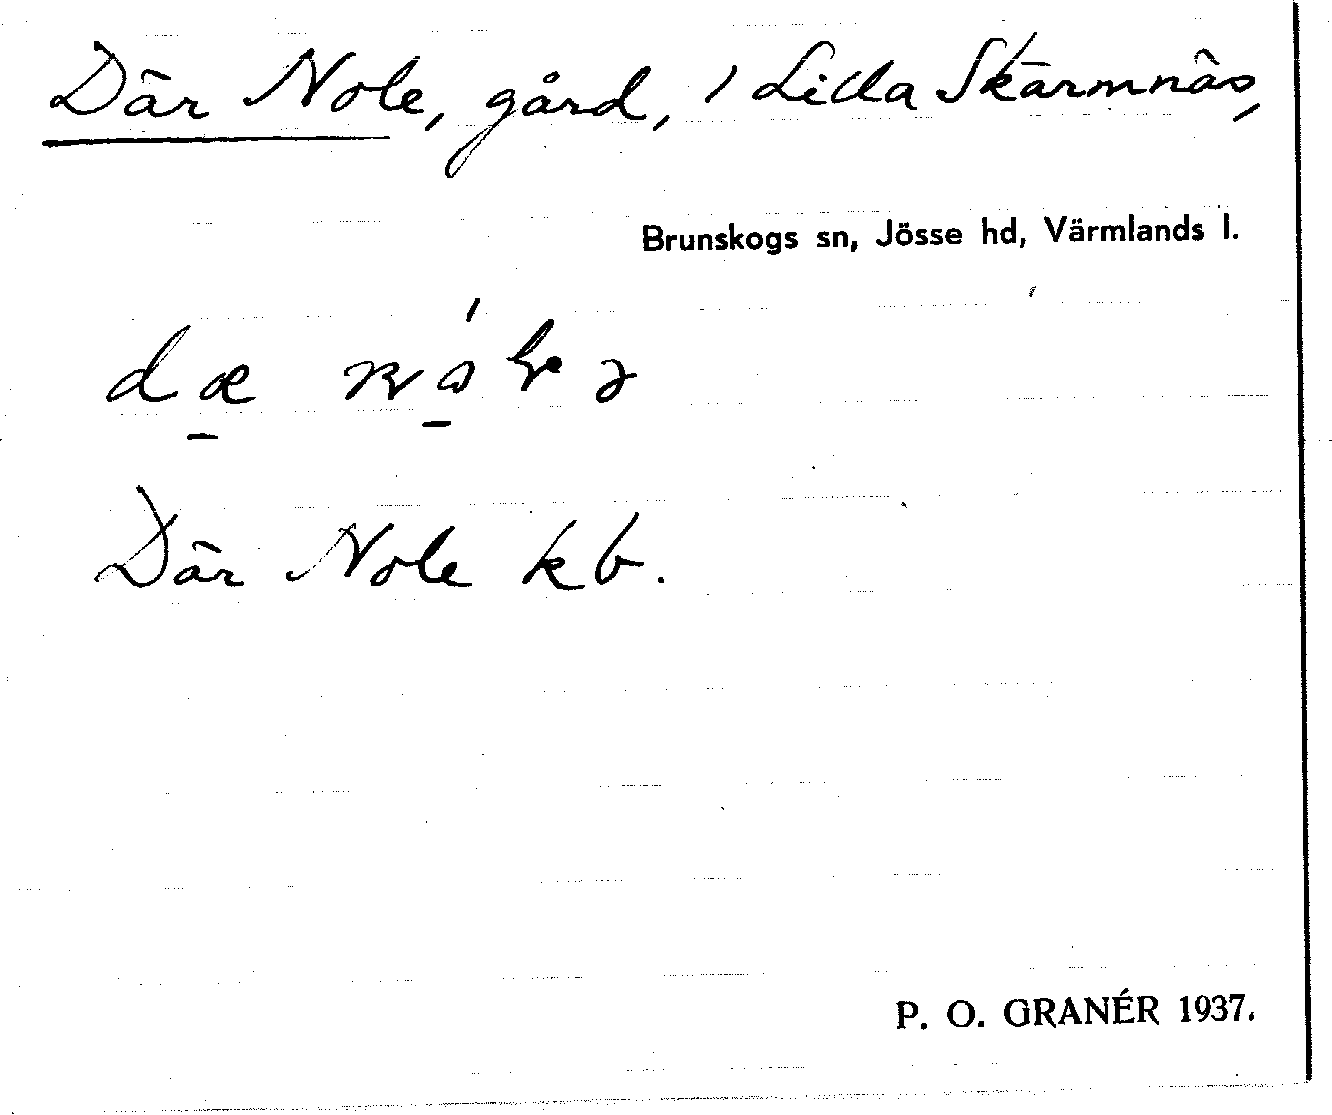 Där Nole, gård, i Lilla Skärmnäs,
Brunskogs sn, Jösse hd, Värmlands l.
dæ
Där Nole kb.
P. O. GRANÉR 1937.